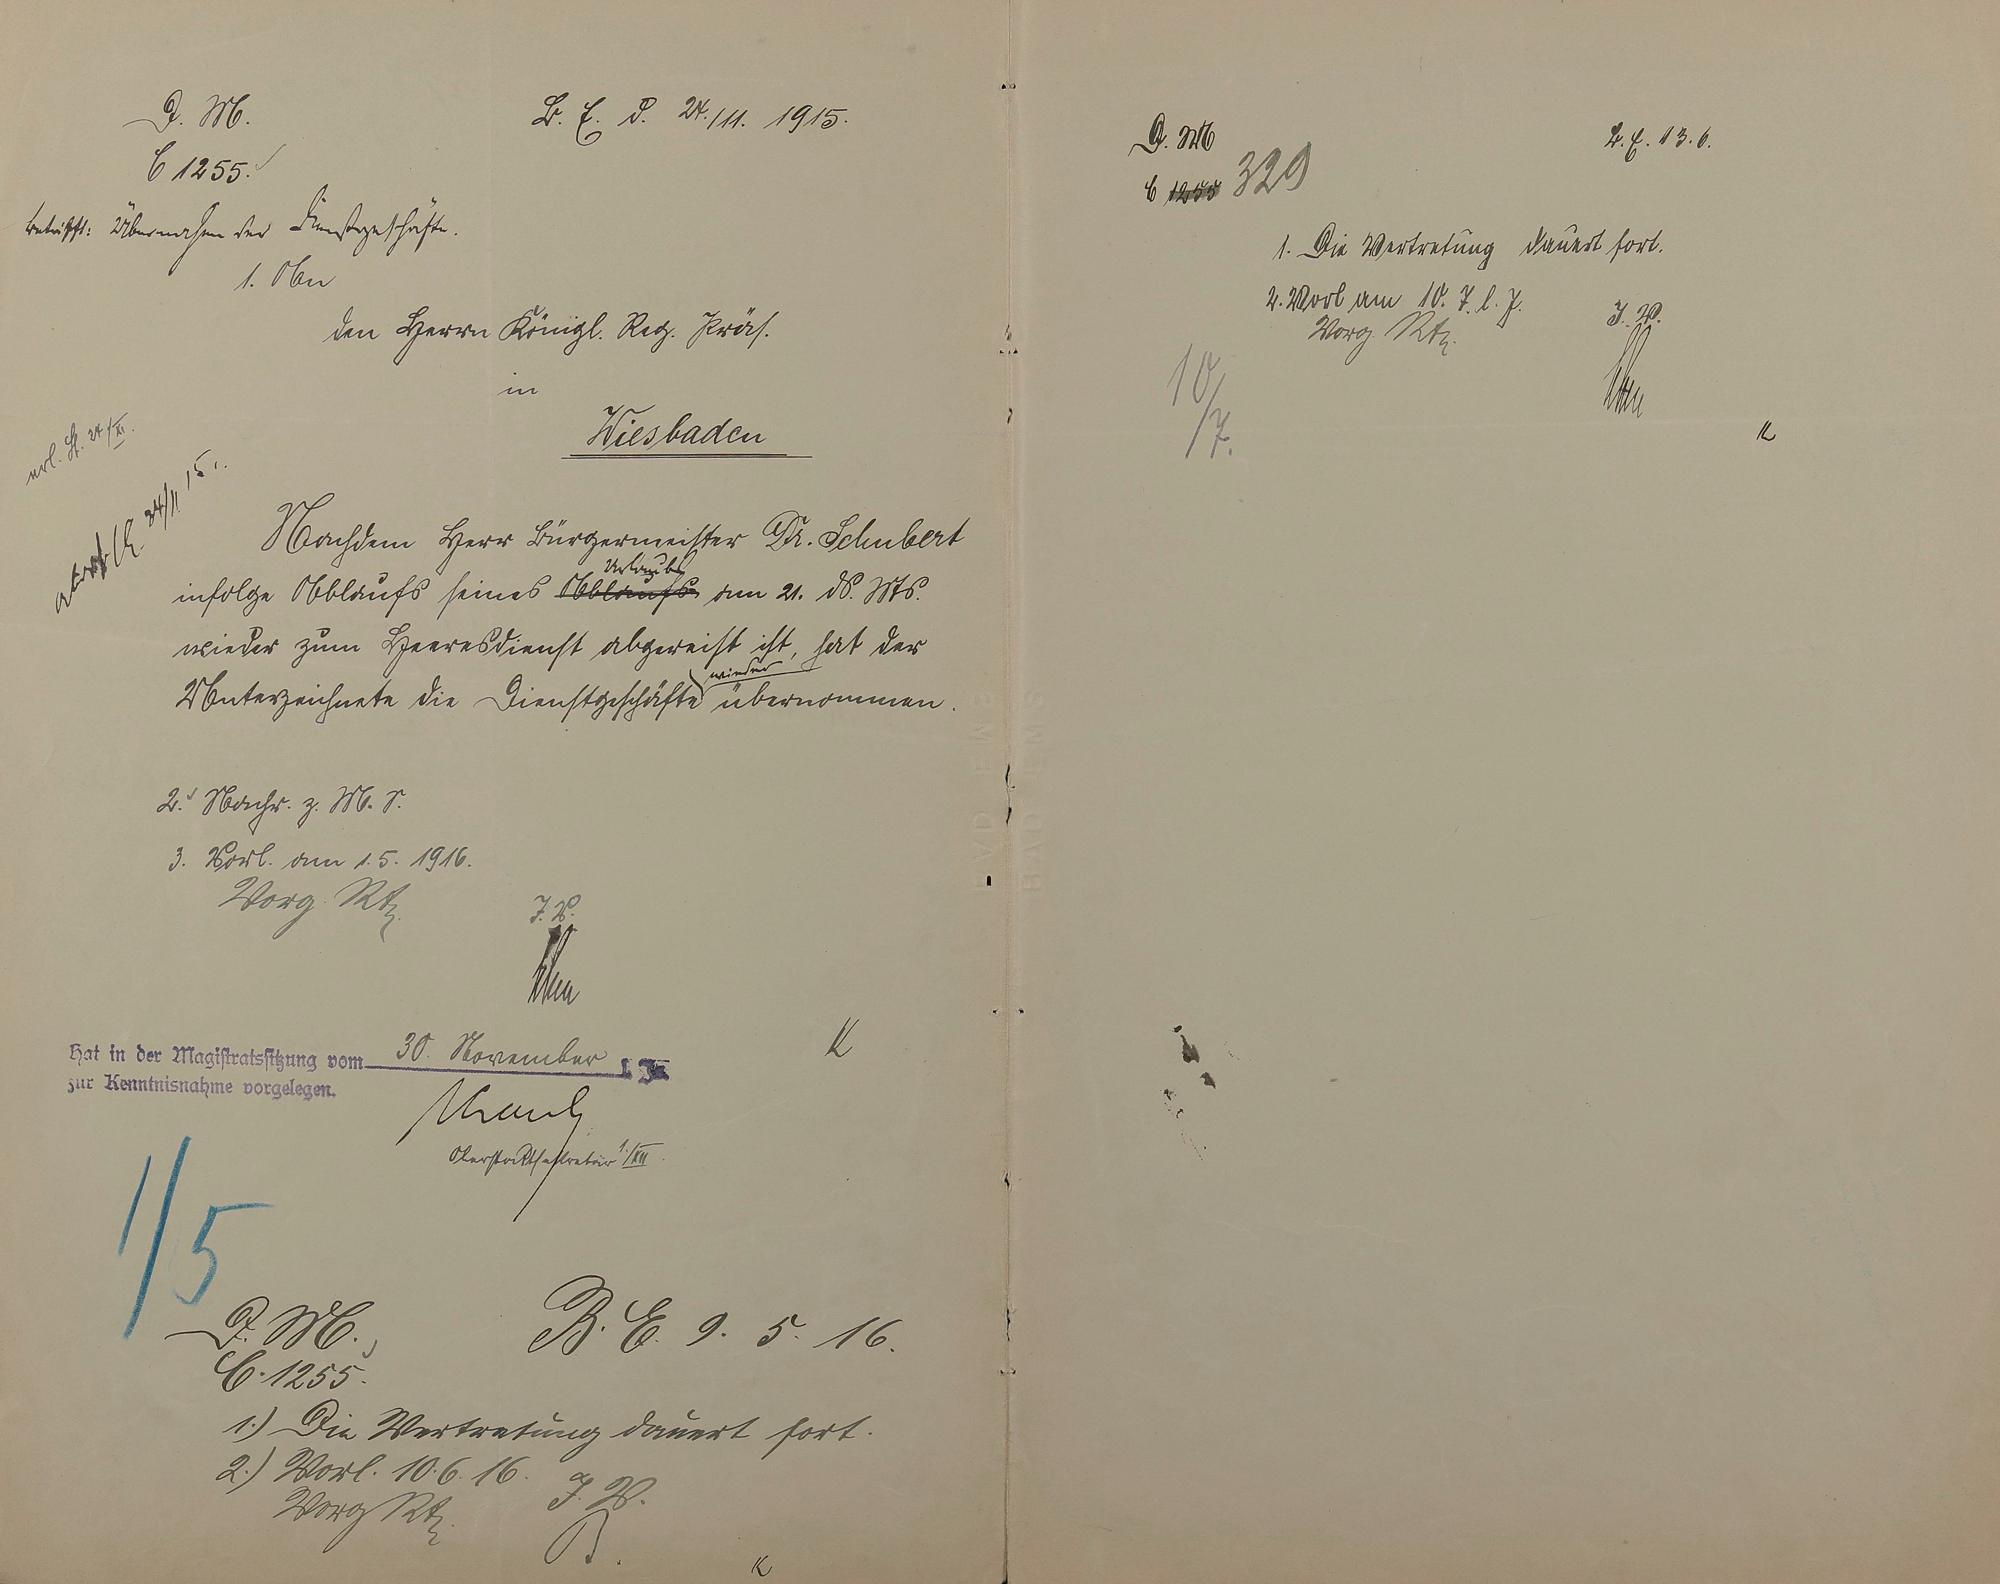 D. M.
B. E. d. 24./11. 1915.
C 1255.
betrifft: Übernahme der Dienstgeschäfte.
1. An
den Herrn Königl. Reg. Präs.
in
Wiesbaden
erl. St. 24/XI.
24/11 15.
Nachdem Herr Bürgermeister Dr. Schubert
infolge Ablaufs seines Ablaufs Urlaubs am 21. ds. Mts.
wieder zum Heeresdienst abgereist ist, hat der
Unterzeichnete die Dienstgeschäfte wieder übernommen.
2. Nachr. z. M. S.
3. Vorl. am 1.5. 1916.
Vorg. Rtz.
J. V.
K
Hat in der Magistratssitzung vom 30. November
zur Kenntnisnahme vorgelegen.
Oberstadtsekretär 1./XII.
1/5
D. M.
B. E. 9. 5. 16.
C. 1255.
1.) Die Vertretung dauert fort.
2.) Vorl. 10.6.16.
Vorg Rtz.
J. V.
K
D. M
B. E. 13. 6.
C 1255 329
1. Die Vertretung dauert fort.
2. Vorl am 10. 7. l. J.
Vorg. Rtz.
J. V.
10/7.
K
BAD EMS